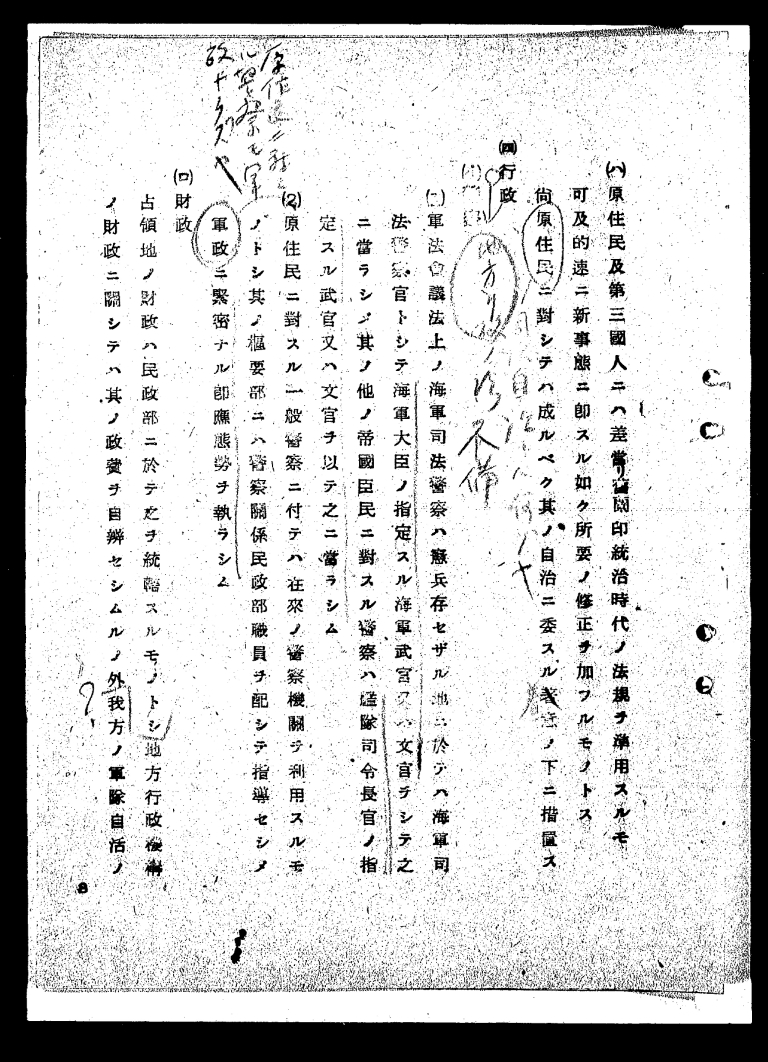 (ハ)原住民及第三國人ニハ差當リ舊蘭印統治時代ノ法規ヲ準用スルモ
可及的速ニ新事態ニ卽スル如ク所要ノ修正ヲ加フルモノトス
尙原住民ニ對シテハ成ルベク其ノ自治ニ委スル著意ノ下ニ措置ス
(四)行政
地方行政ノ
不備
(1)軍法會議法上ノ海軍司法警察ハ憲兵存セザル地ニ於テハ海軍司
法警察官トシテ海軍大臣ノ指定スル海軍武官又ハ文官ヲシテ之
ニ當ラシメ其ノ他ノ帝國臣民ニ對スル警察ハ艦隊司令長官ノ指
定スル武官又ハ文官ヲ以テ之ニ當ラシム
(2)原住民ニ對スル一般警察ニ付テハ在來ノ警察機關ヲ利用スルモ
ノトシ其ノ樞要部ニハ警察關係民政部職員ヲ配シテ指導セシメ
軍政ニ緊密ナル卽應態勢ヲ執ラシム
(ロ)財政
占領地ノ財政ハ民政部ニ於テ之ヲ統轄スルモノトシ地方行政機構
ノ財政ニ關シテハ其ノ政費ヲ自辨セシムルノ外我方ノ軍隊自活ノ
?
8